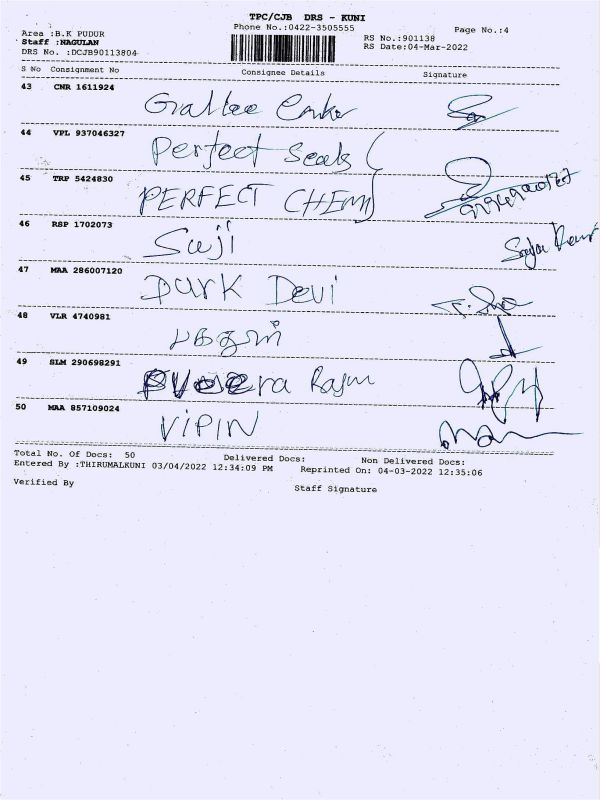 TPC/CJB DRS - KUNI
Phone No.:0422-3505555
Page No.:4
Area :B.K PUDUR
Staff :NAGULAN
DRS No. :DCJB90113804
RS No.:901138
RS Date:04-Mar-2022
S No Consignment No Consignee Details Signature
43 CNR 1611924
44 VPL 937046327 Perfect Seals
45 TRP 5424830 PERFECT CHEM
46 RSP 1702073 Suji
47 MAA 286007120 Durk Devi
48 VLR 4740981
49 SLM 290698291
50 MAA 857109024 VIPIN
Total No. Of Docs: 50 Delivered Docs: Non Delivered Docs:
Entered By :THIRUMALKUNI 03/04/2022 12:34:09 PM Reprinted On: 04-03-2022 12:35:06
Verified By Staff Signature